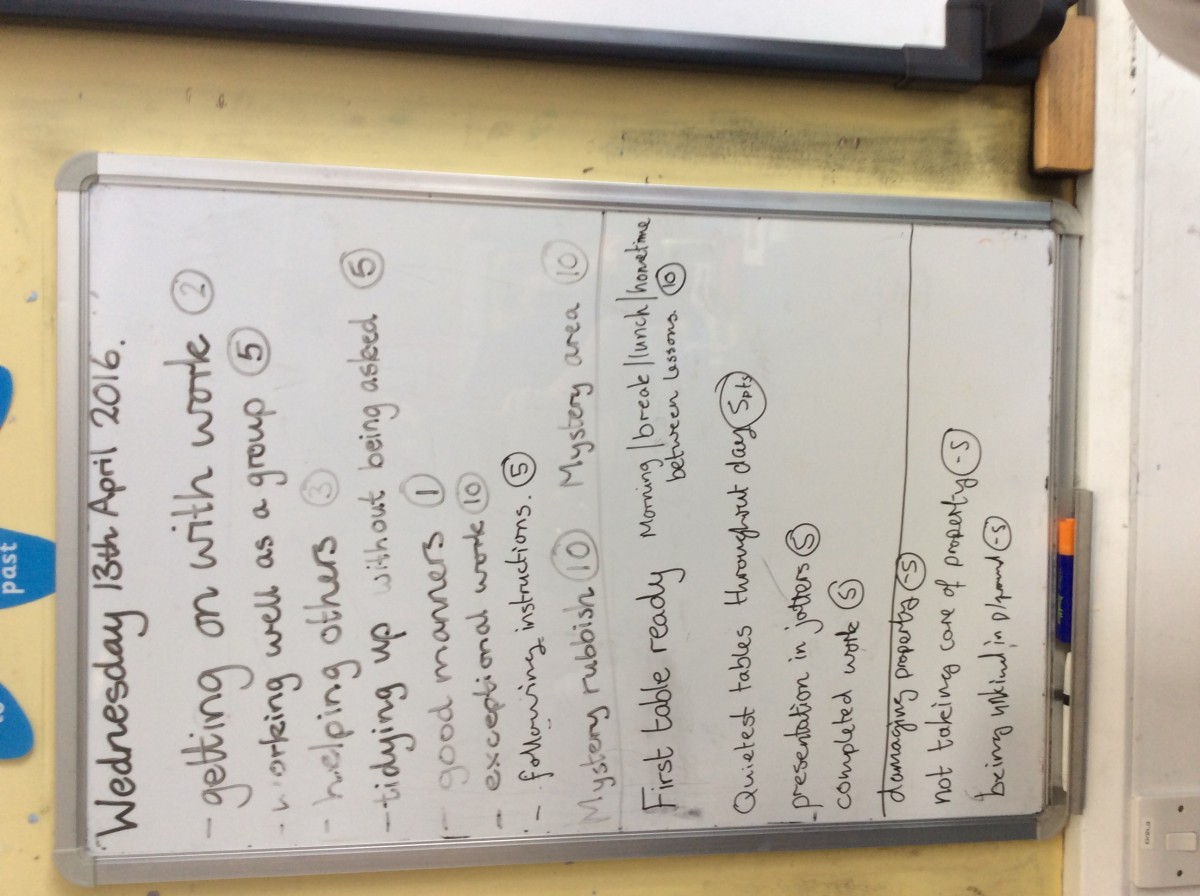 Wednesday 13th April 2016.
- getting on with work 2
- working well as a group 5
- helping others 3
- tidying up without being asked 5
- good manners 1
- exceptional work 10
- following instructions. 5
Mystery rubbish 10 Mystery area 10
First table ready Morning/break/lunch/hometime
between lessons 10
Quietest tables throughout day 5pts
- presentation in jotters 5
completed work 5
damaging property -5
not taking care of property -5
being unkind in p/ground -5
past